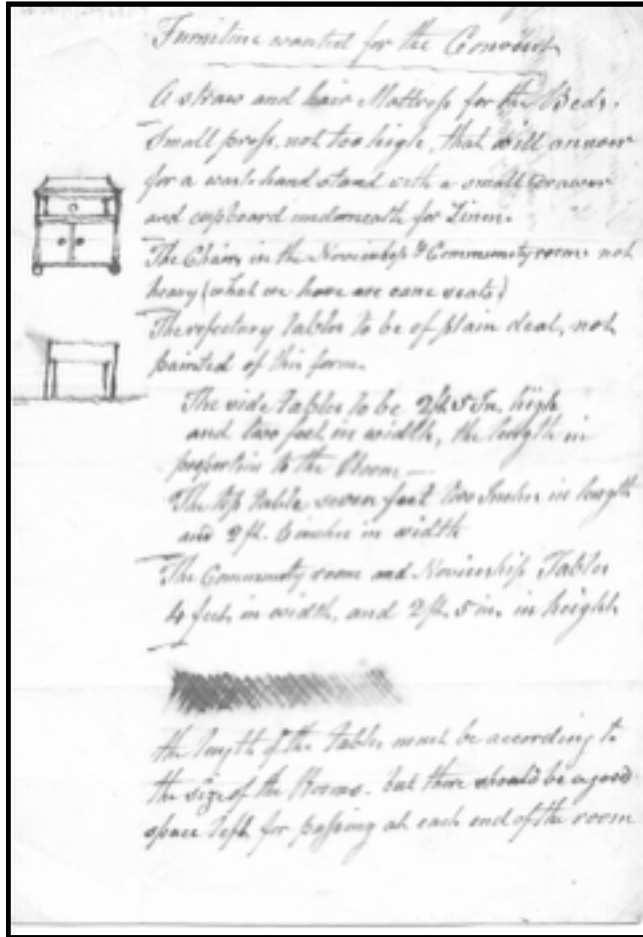 Furniture wanted for the Convent
A straw and hair Mattress for the Beds.
Small press, not too high, that will answer
for a wash hand stand with a small Drawer
and cupboard underneath for Linen.
The Chairs in the Noviceship & Community room not
heavy (what we have are cane seats)
The refectory tables to be of plain deal, not
painted of this form.
The side tables to be 2ft 5 In. high
and two feet in width, the length in
proportion to the Room —
The top table seven feet two Inches in length
and 2 ft. 6 inches in width
The Community room and Noviceship Tables
4 feet in width, and 2 ft. 5 in. in height
the length of the tables must be according to
the size of the Rooms. but there should be a good
space left for passing at each end of the room